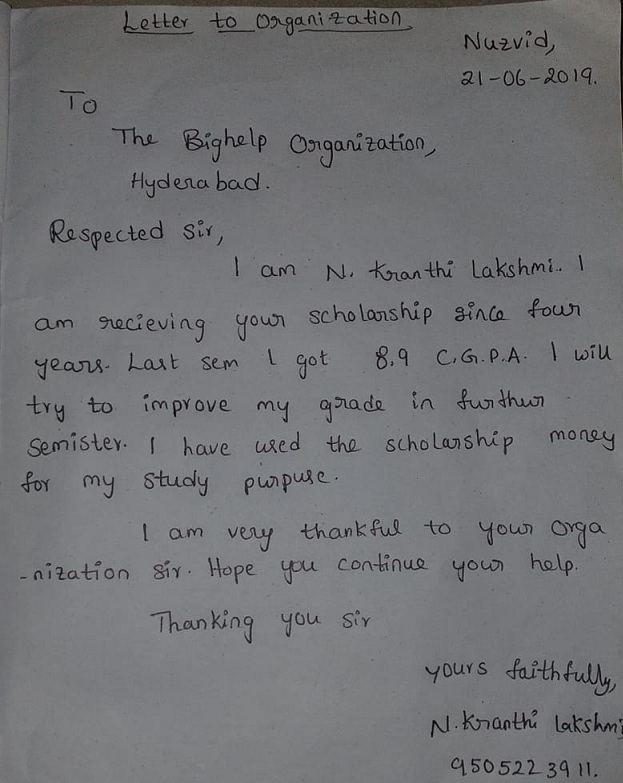 Letter to Organization
Nuzvid,
21-06-2019.
To
The Bighelp Organization,
Hyderabad.
Respected Sir,
I am N. Kranthi Lakshmi.. I
am recieving your scholarship since four
years. Last sem I got 8.9 C.G.P.A. I will
try to improve my grade in furthur
semister. I have used the scholarship money
for my study purpuse.
I am very thankful to your Orga
-nization sir. Hope you continue your help.
Thanking you sir
yours faithfully,
N. Kranthi lakshmi
9505223911.